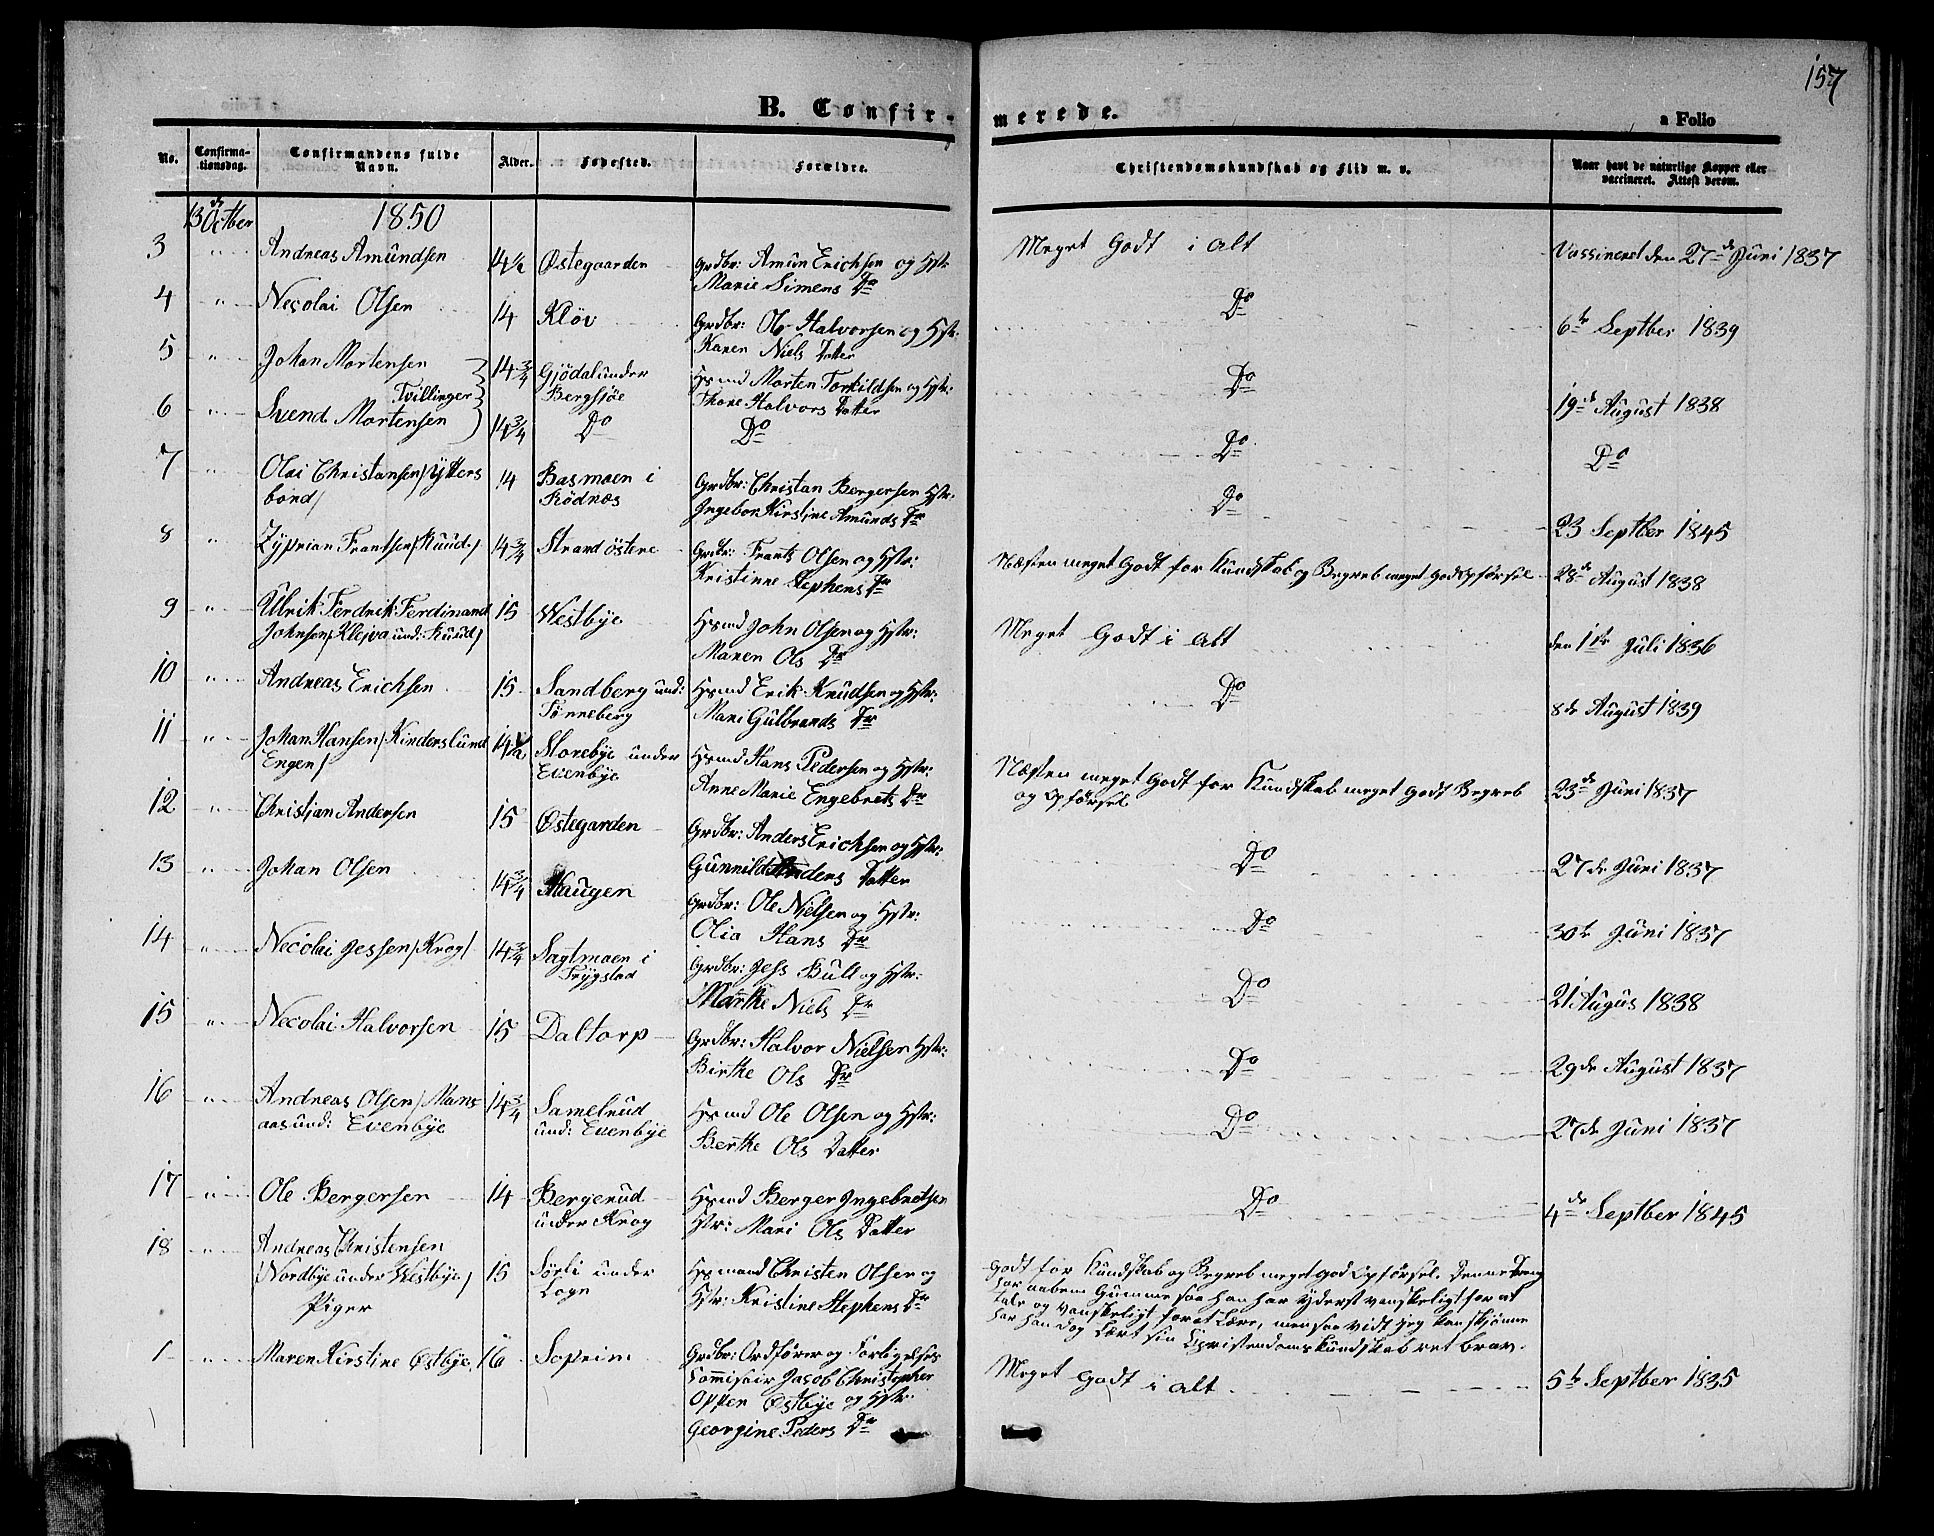 157
B. Confirmerede.
a Folio
No. Confirmationsdag. Confirmandens fulde Navn. Alder. Fødested. Forældre. Christendomskundskab og Flid m. v. Naar havt de naturlige Kopper eller vaccineret. Attest derom.
13de Octber 1850
3 " Andreas Amundsen 14½ Østegaarden Grdbr: Amun Erichsen og Hstr Marie Simens Dr Meget Godt i alt Vassineret den 27de Juni 1837
4 " Necolai Olsen 14 Kløv Grdbr: Ole Halvorsen og Hstr: Karen Niels Datter Do 6te Septber 1839
5 " Johan Mortensen 14¾ Gjödal under Bergsjøe Hsmd Morten Torkildsen og Hstr: Thore Halvors Datter Do 19de August 1838
Tvillinger
6 " Svend Mortensen 14¾ Do Do Do Do
7 " Olai Christansen /Ytters bond/ 14 Basmoen i Rödnæs Grdbr: Christan Bergersen Hstr: Ingebor Kirstine Amunds Dr Do 23 Septber 1845
8 " Zyprian Frantsen /Ruud/ 14¾ Strand östere Grdbr: Frants Olsen og Hstr: Kristinne Stephens Dr Næsten meget Godt for Kundskab og Begreb meget God Opförsel 28de August 1838
9 " Ulrik Fredrik Ferdinand Johnsen /Klejva und: Ruud/ 15 Westbye Hsmd John Olsen og Hstr: Maren Ols Dr Meget Godt i alt den 1ste Juli 1836
10 " Andreas Erichsen 15 Sandberg und: Tönneberg Hsmd Erik Knudsen og Hstr: Mari Gulbrands Dr Do 8de August 1839
11 " Johan Hansen /Kinderslund Engen/ 14½ Storebye under Evenbye Hsmd Hans Pedersen og Hstr: Anne Marie Engebrets Dr Næsten meget Godt for Kundskab meget Godt Begreb og Opförsel 23de Juni 1837
12 " Christjan Andersen 15 Østegarden Grdbr: Anders Erichsen og Hstr: Gunnild Anders Datter Do 27de Juni 1837
13 " Johan Olsen 14¾ Haugen Grdbr: Ole Nielsen og Hstr: Olia Hans Dr Do 30te Juni 1837
14 " Necolai Jessen /Krog/ 14¾ Sagtmoen i Trygstad Grdbr: Jess Bull og Hstr: Marthe Niels Dr Do 21 Augus 1838
15 " Necolai Halvorsen 15 Daltorp Grdbr: Halvor Nielsen Hstr: Birthe Ols Dr Do 29de August 1837
16 " Andreas Olsen /Mans aas und: Evenbye 14¾ Samelrud und: Evenbye Hsmd Ole Olsen og Hstr: Berthe Ols Datter Do 27de Juni 1837
17 " Ole Bergersen 14 Bergerud under Krog Hsmd Berger Ingebretsen Hstr: Mari Ols Datter Do 4de Septber 1845
18 " Andreas Christensen /Nordbye under Westbye/ 15 Sörli under Logn Hsmand Christen Olsen og Hstr: Kristine Stephens Dr Godt for Kundskab og Begreb meget God Opförsel. Denne Dreng har aaben Gumme saa han har yderst vanskeligt for at tale og vanskeligt for at Lære, men saa vidt jeg kan skjönne har han dog Lært sin Christendomskundskab ret brav.
Piger
1 " Maren Kirstine Østbye 16 Soprim Grdbr: Ordförer og Forligelses Comisair Jacob Christopher Oppen Østbye og Hstr: Georgine Peders Dr Meget Godt i alt 5te Septber 1835